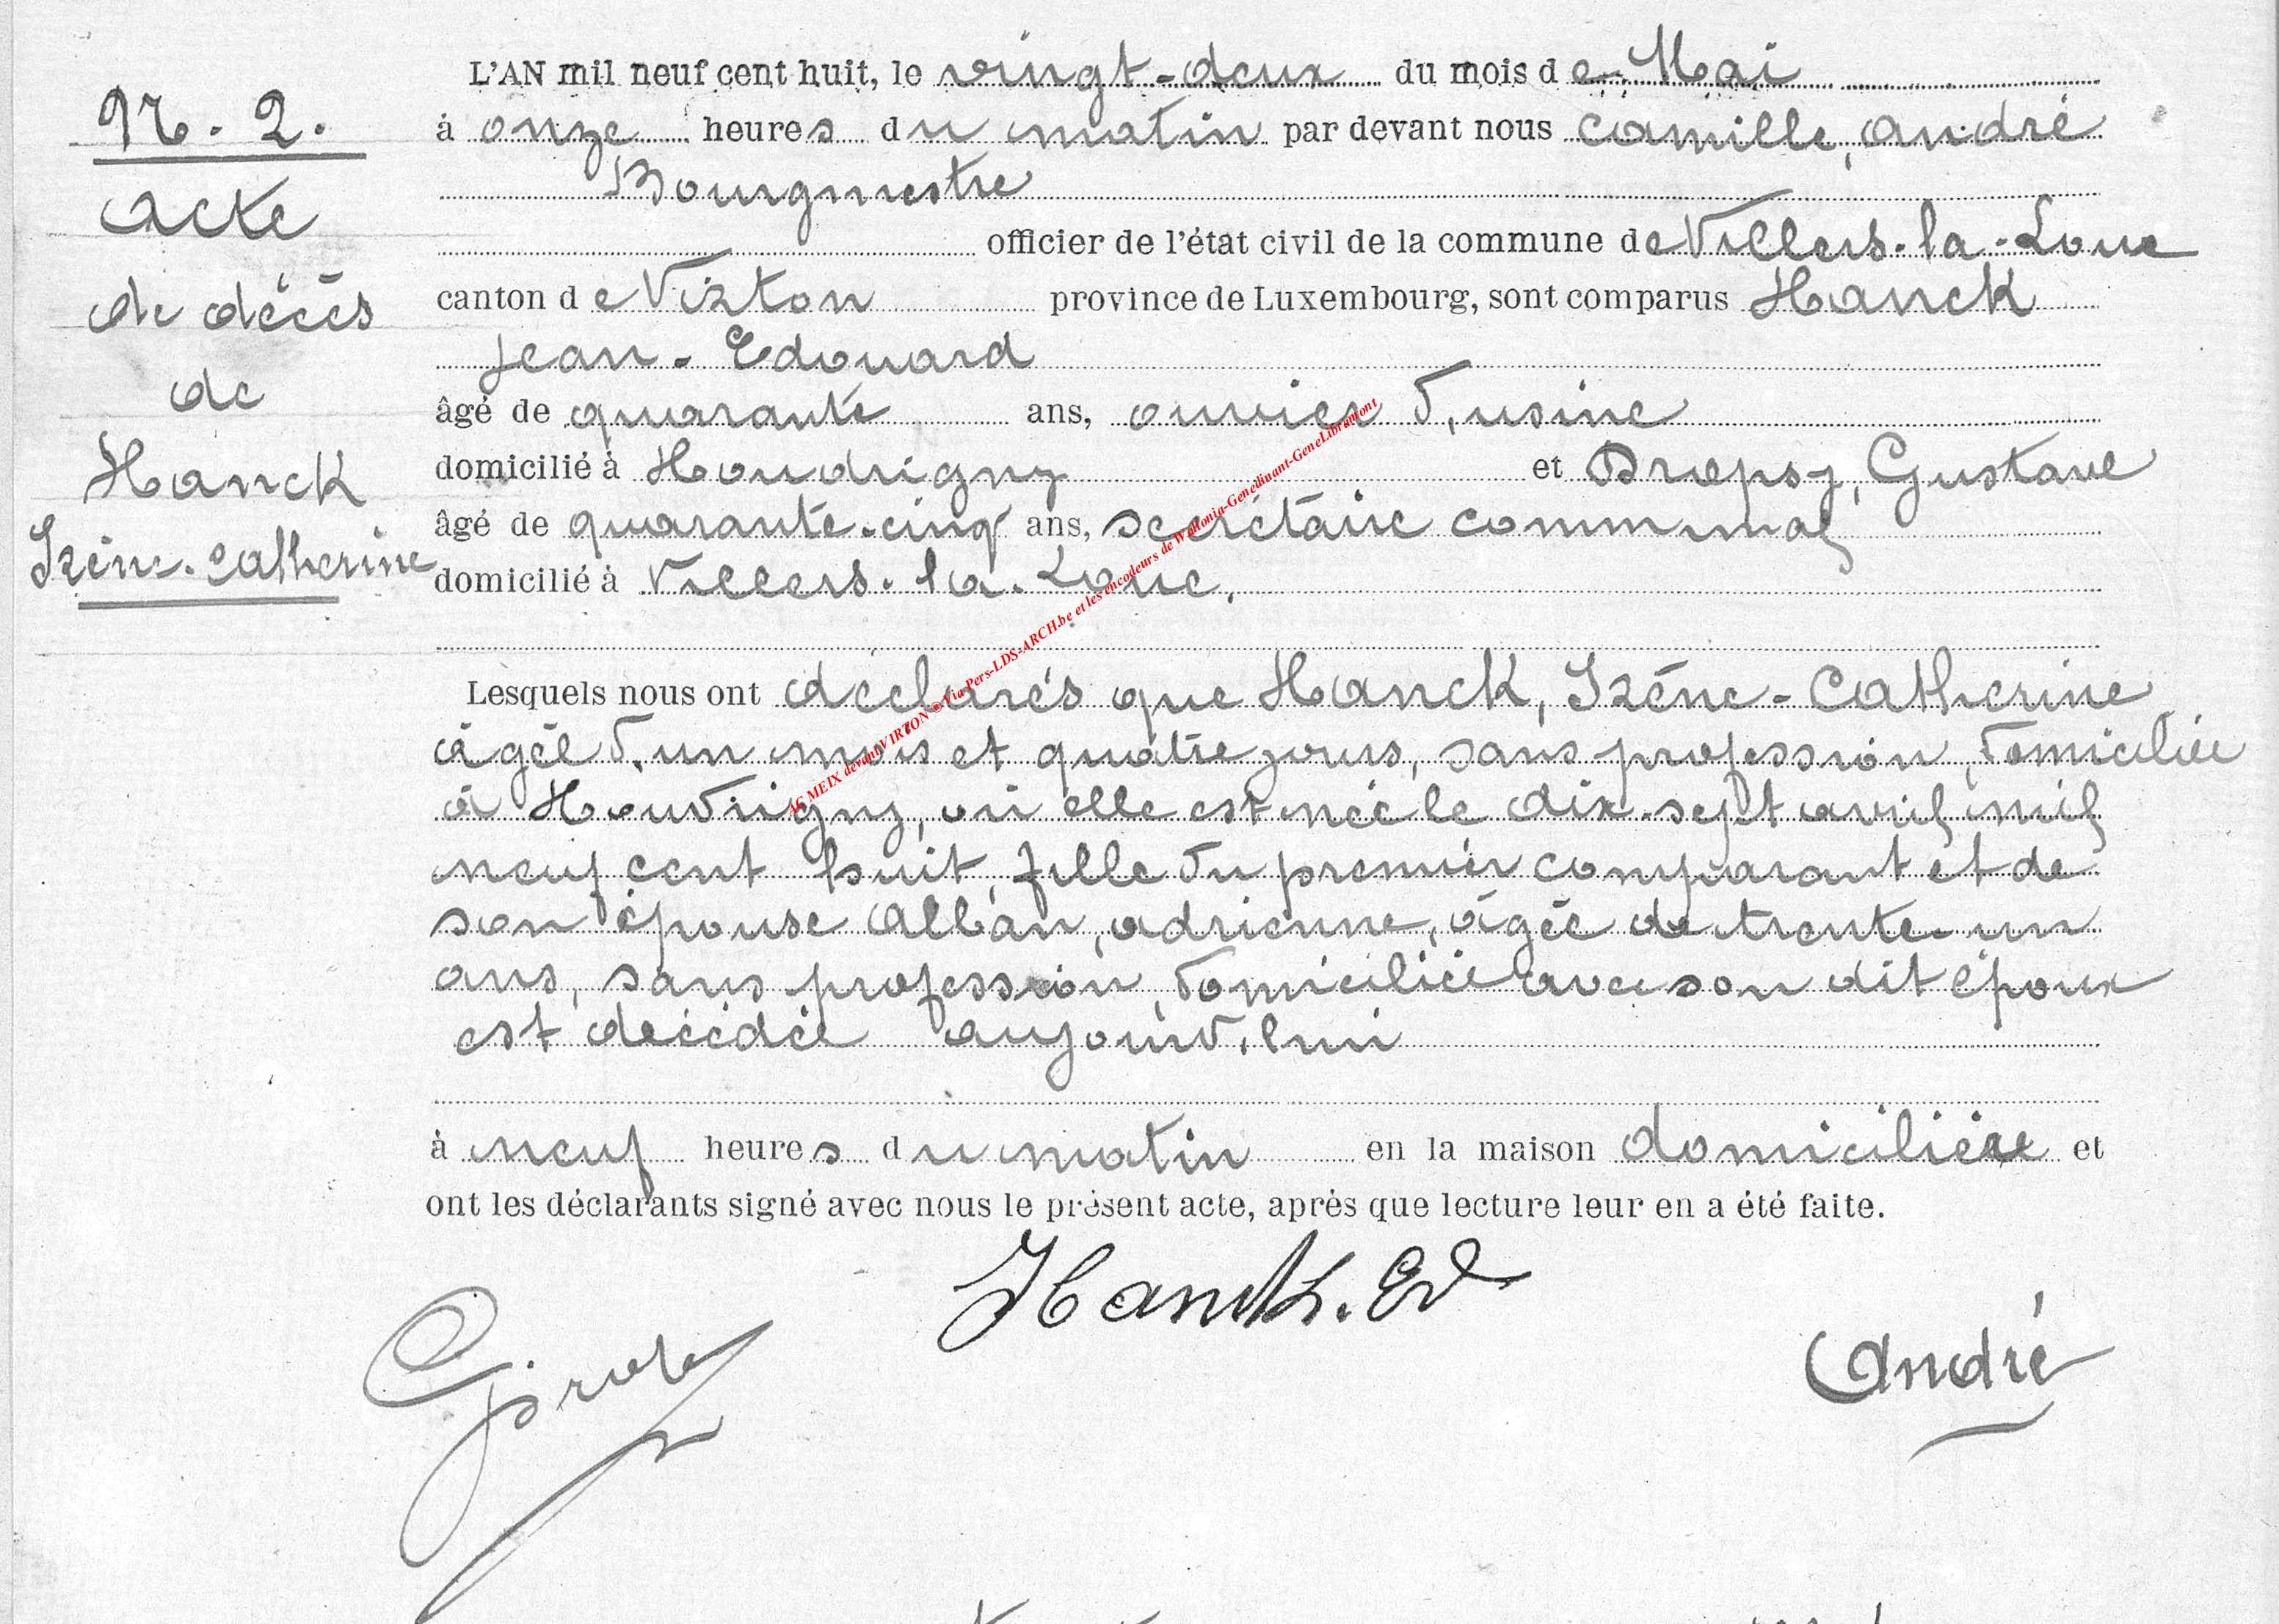 N° 2.
acte
de décès
de
Hanck
Irène-Catherine
L'AN mil neuf cent huit, le vingt-deux du mois de Mai
à onze heures du matin par devant nous Camille, André
Bourgmestre
officier de l'état civil de la commune de Villers-la-Loue
canton de Virton province de Luxembourg, sont comparus Hanck
Jean-Edouard
âgé de quarante ans, ouvrier d'usine
domicilié à Houdrigny et Dropsy, Gustave
âgé de quarante-cinq ans, secrétaire communal
domicilié à Villers-la-Loue.
Lesquels nous ont déclarés que Hanck, Irène-Catherine
âgée d'un mois et quatre jours, sans profession, domiciliée
à Houdrigny, où elle est née le dix-sept avril mil
neuf cent huit, fille du premier comparant et de
son épouse Alban, Adrienne, âgée de trente-un
ans, sans profession, domiciliée avec son dit époux
est décédée aujourd'hui
à neuf heures du matin en la maison domicilière et
ont les déclarants signé avec nous le présent acte, après que lecture leur en a été faite.
Hanck. Ed
André
AC MEIX devant VIRTON - Via Pers-LDS-ARCH.be et les encodeurs de Wallonia-Genedinant-GeneLibramont